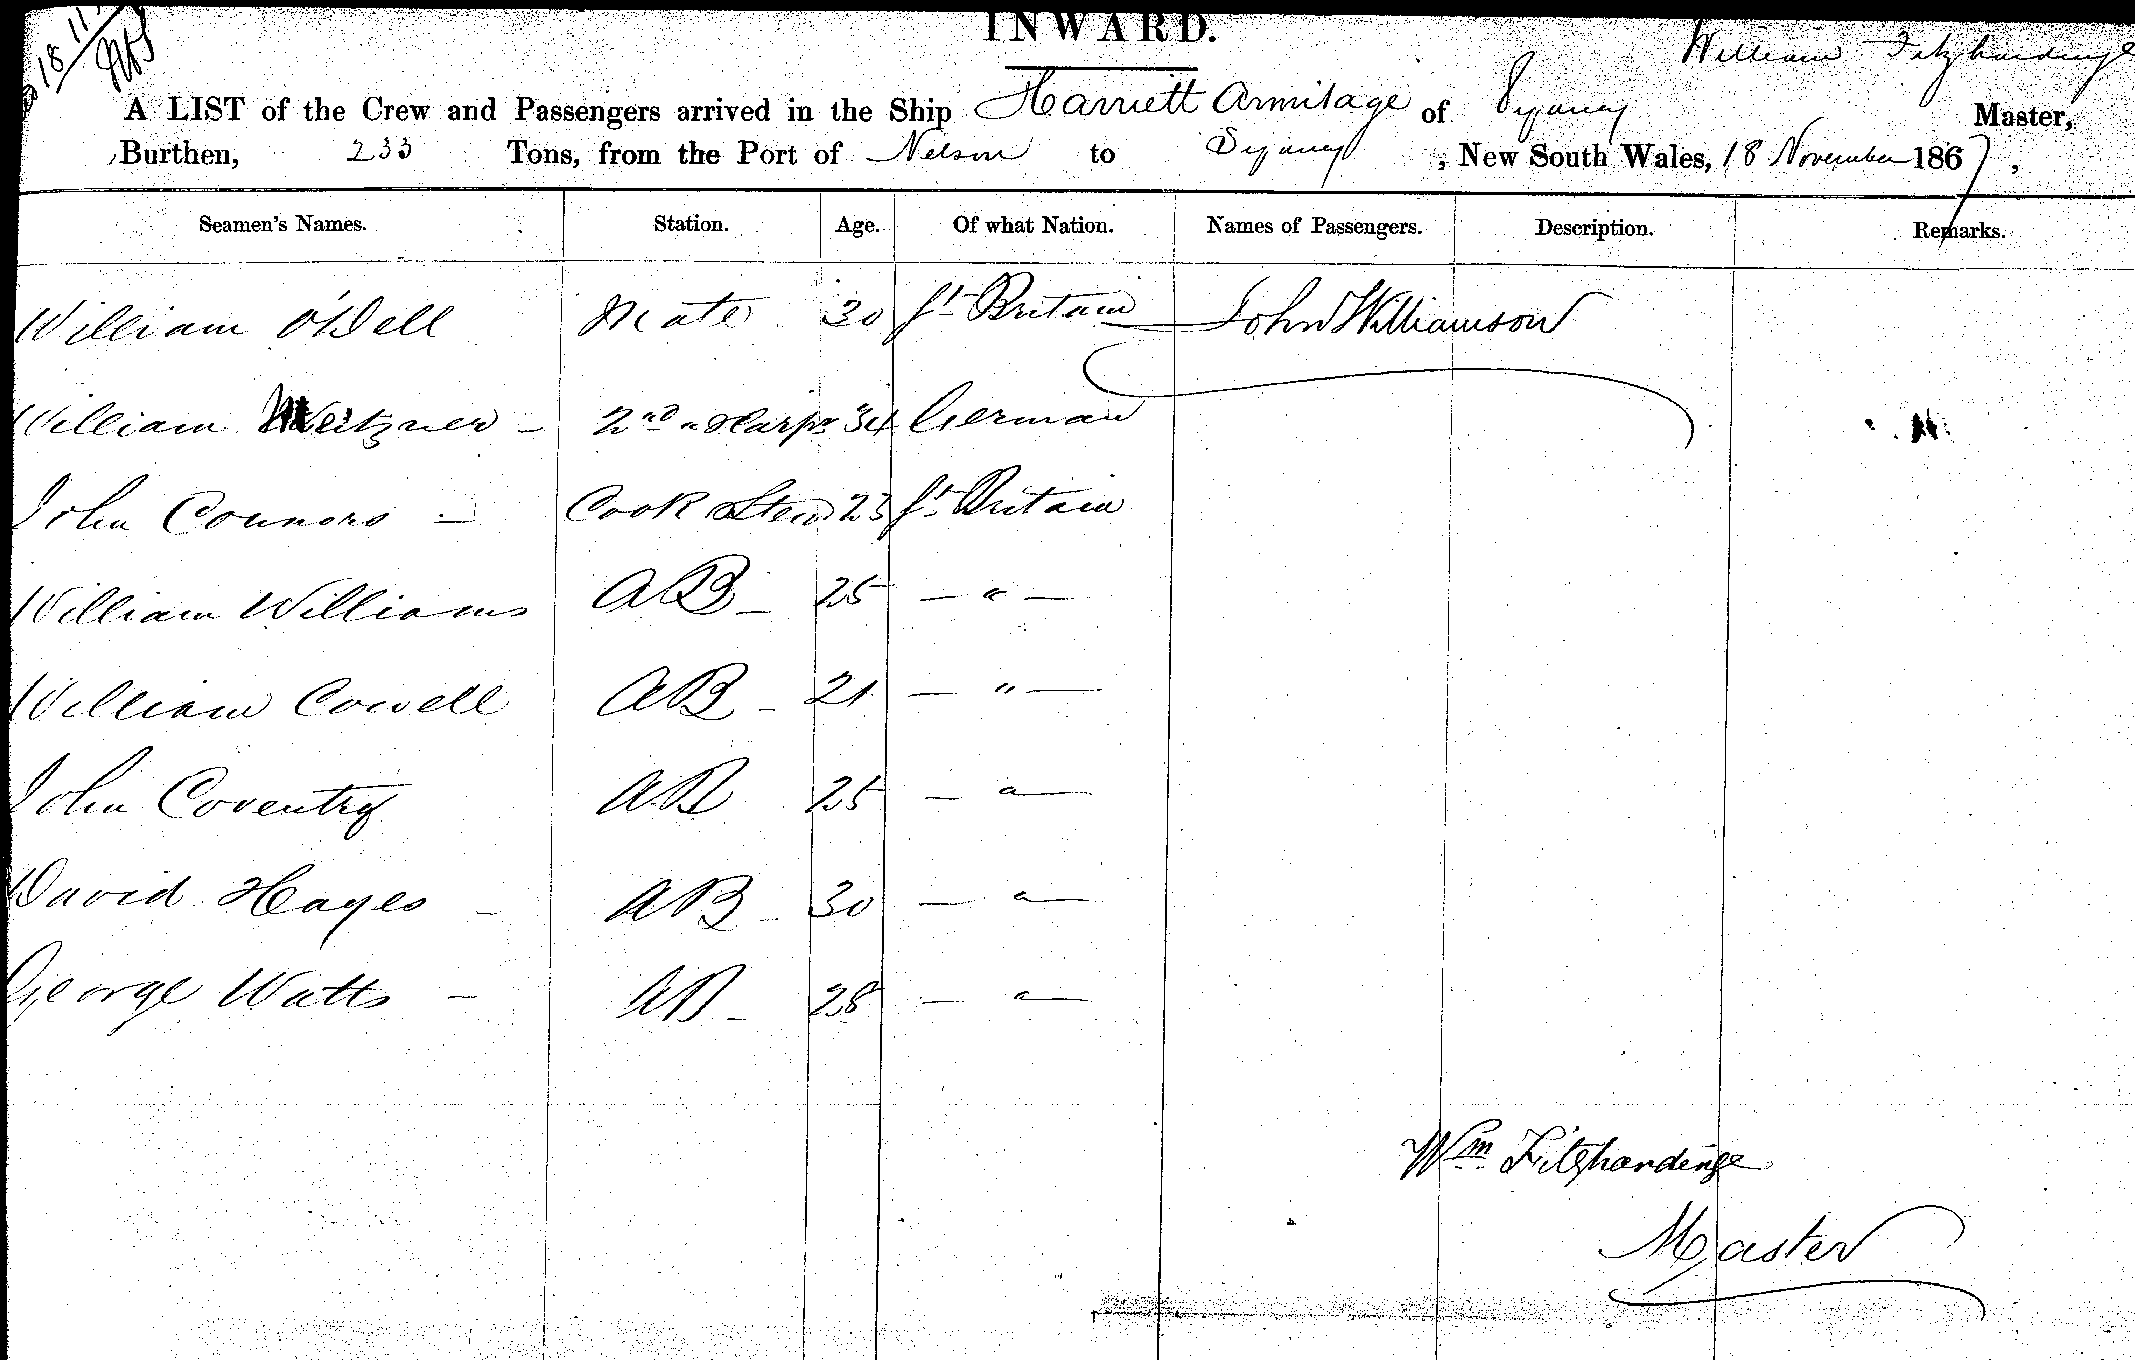 INWARD.
William Fitzhardinge
A LIST of the Crew and Passengers arrived in the Ship Harriett Armitage of Sydney Master,
Burthen, 233 Tons, from the Port of Nelson to Sydney, New South Wales, 18 November 1867,
Seamen's Names. Station. Age. Of what Nation. Names of Passengers. Description. Remarks.
William O'Dell Mate 30 Gt Britain John Williamson
William 2nd " 34 German
John Connors - Cook Stew 23 Gt Britain
William Williams AB - 25 — " —
William Cowell AB - 21 — " —
John Coventry AB 25 — " —
David Hayes - AB - 30 — " —
George Watts - AB - 28 — " —
Wm Fitzhardinge
Master